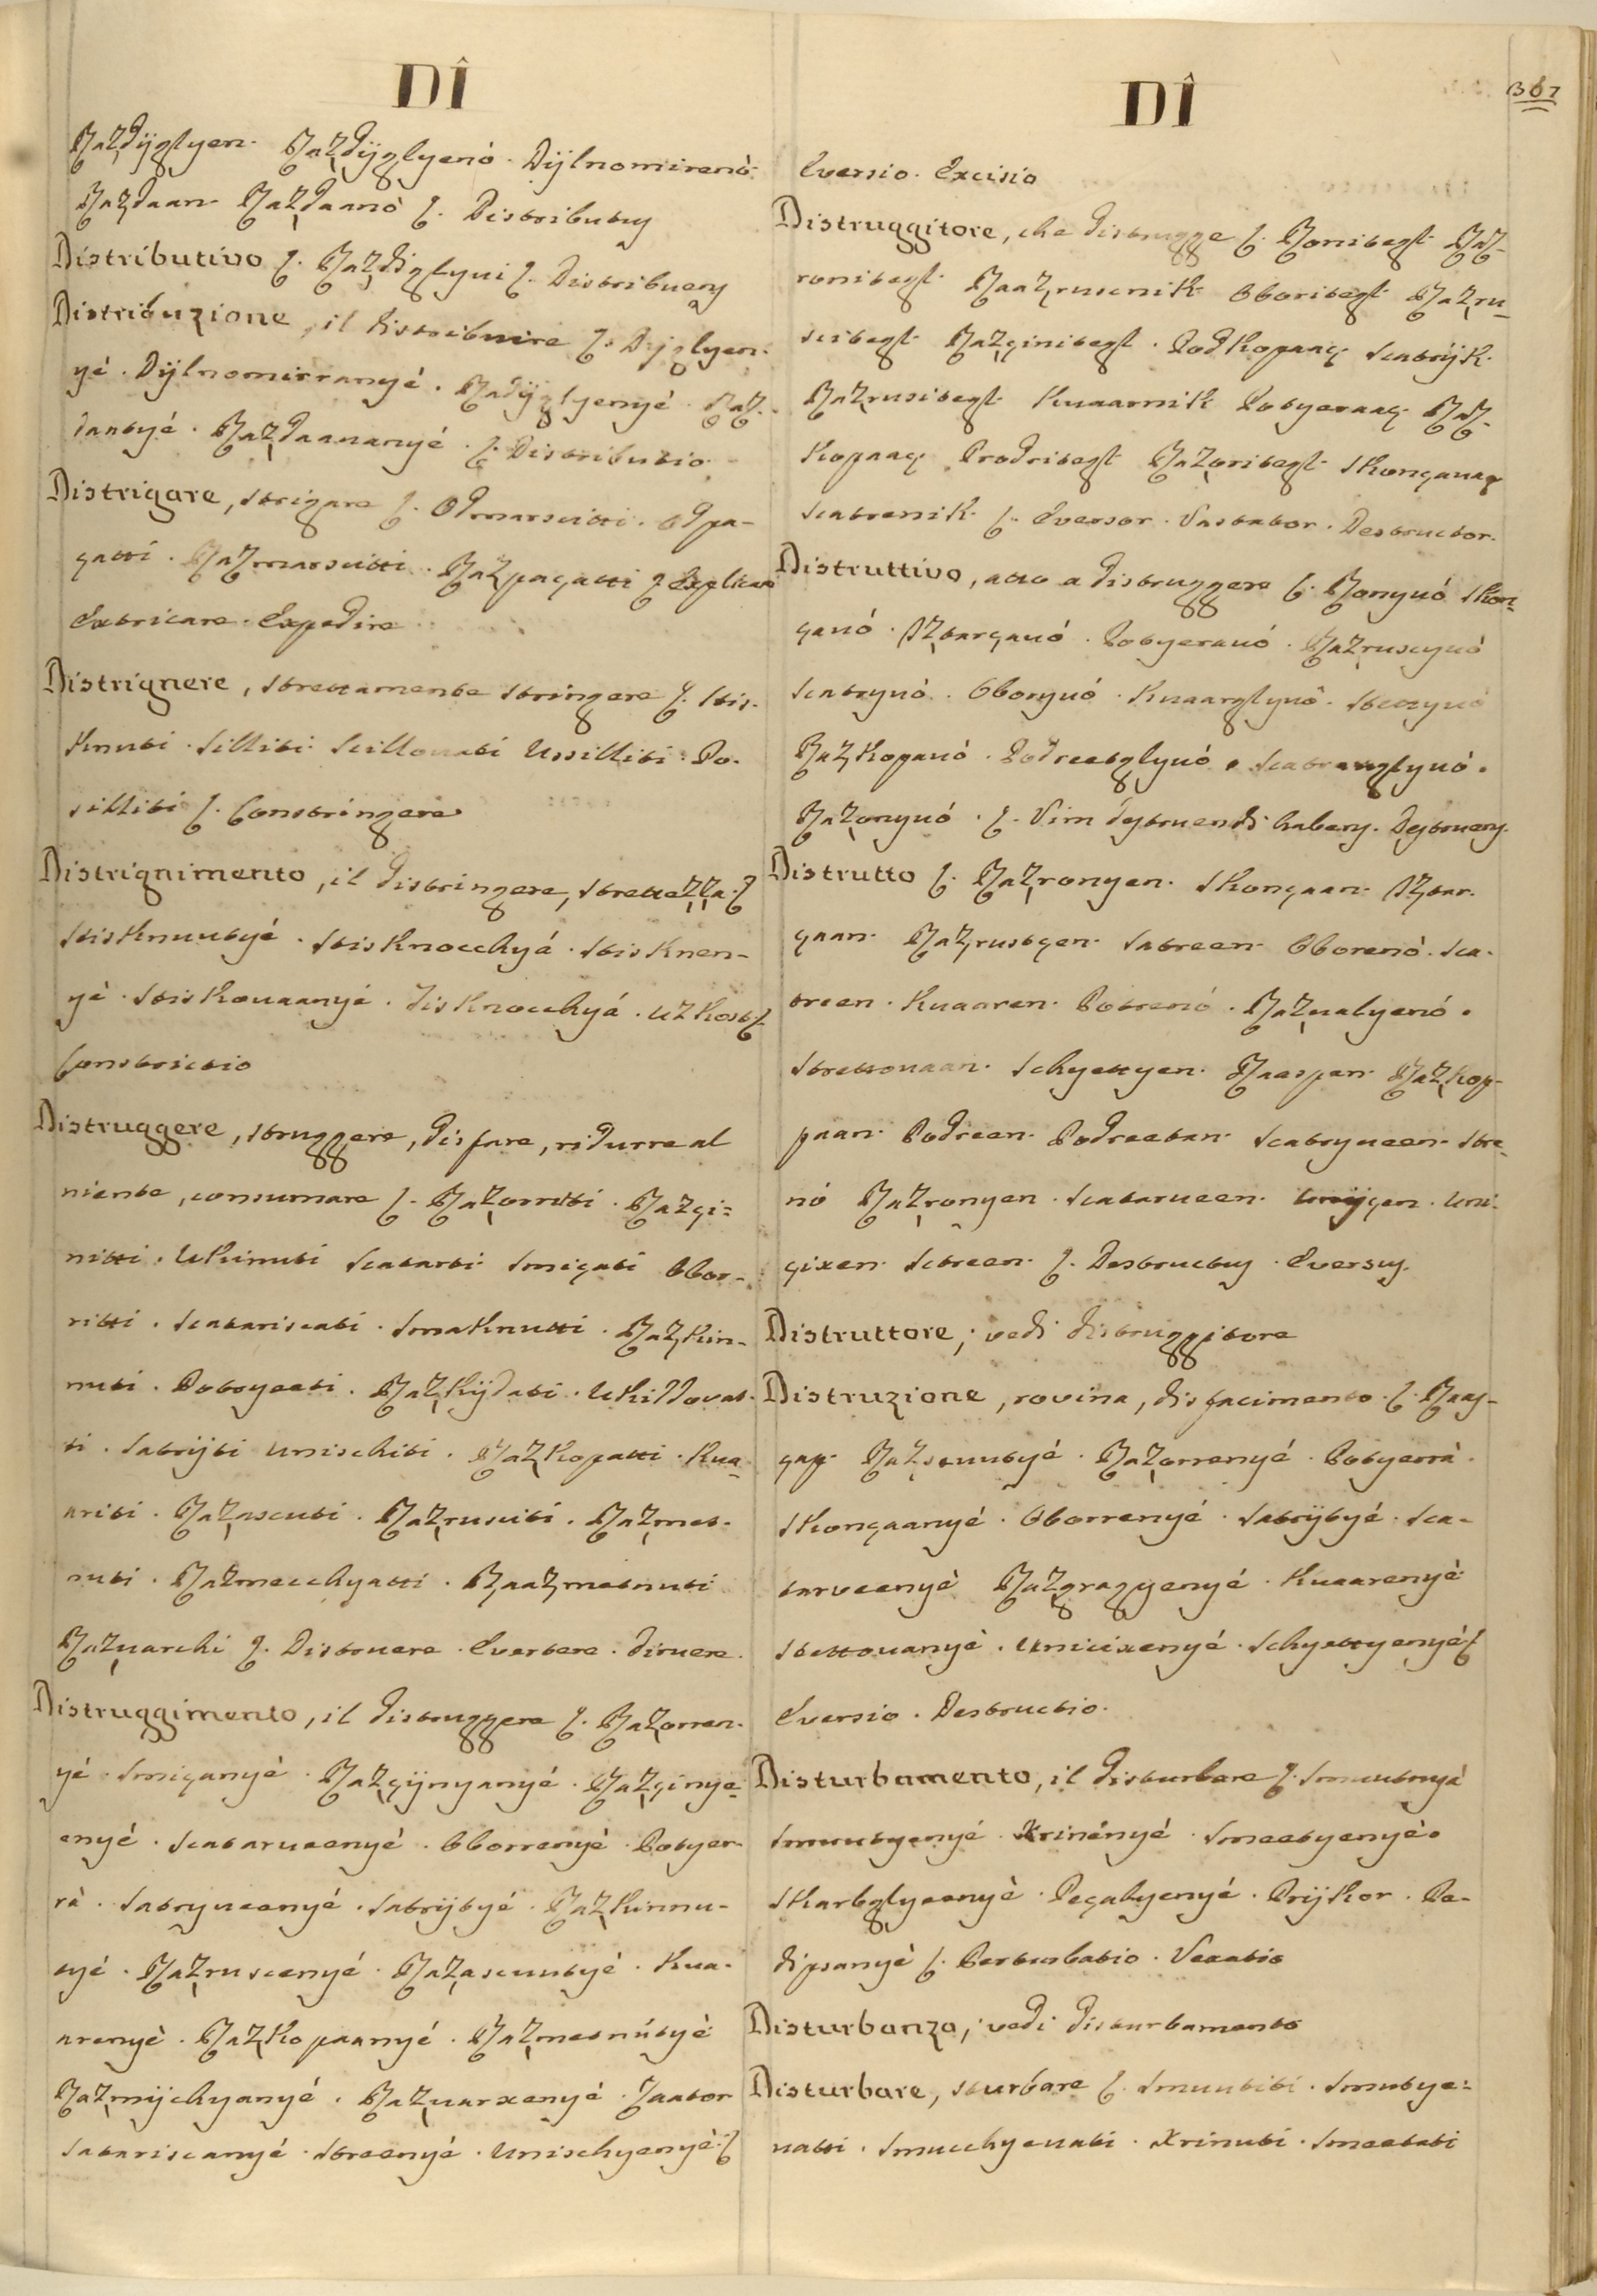 DÎ
Razdÿglyen. Razdÿglyenò. Dÿlnomirenò.
Razdaan. Razdaanò ſ. Distributus
Distributivo ſ. Razdiglyui ſ. Distribuens
Distribuzione, il distribuire ſ. Dÿglyen-
yé. Dÿlnomirranyé. Radÿglyenyé. Raz-
daatyé. Razdaavanyé. ſ. Distributio.
Distrigare, strigare ſ. Odmarsitti. Odpa-
çatti. Razmarsitti. Razpaçatti ſ. Explicare
Extricare. Expedire
Distrignere, strettamente stringere ſ. Stis-
knuti. Silliti. Scillovati Ussilliti. Po-
silliti ſ. Constringere
Distrignimento, il distringere, strettezza. ſ
Stisknuutyé. Stisknocchyá. Stisknen-
yè. Stiskovaanyé. Tisknocchyá. Uzkost ſ
Constrictio
Distruggere, struggere, disfare, ridurre al
niente, consumare ſ. Razorritti. Razçi=
nitti. Ukinuti Scatarti Smiçati Obor-
ritti. Scatariscati. Smaknutti. Razkin-
nuti. Potryeeti. Razkÿdati. Ukidovat-
ti. Satrÿti Unischiti. Razkopatti. Kua-
ariti. Razascuti. Razrusciti. Razmet-
nuti. Razmecchyatti. Raazmetnuti
Razuarchi ſ. Distruere. Evertere. Diruere.
Distruggimento, il distruggere ſ. Razorren-
yé. Smiçanyé. Razçÿnyanyé. Razçinye=
enyé. Scatarueenyè. Oborrenyè. Potyer-
rà. Satryueenyé. Satrÿtyé. Razkinnu-
tyé. Razruscenyé. Razascuutyé. Kua-
arenyè. Razkopaanyé. Razmetnútyè
Razmÿchyanyé. Razuarxenyé. Zaator
Satariscanyé. Streenyé. Unischyenyè. ſ
DÎ
367
Eversio. Excisio
Distruggitore, che distrugge ſ. Ronitegl. Raz-
ronitegl. Raazruscnik. Oboritegl. Razru-
scitegl. Razçinitegl. Podkopaaç. Scatrÿk.
Razrusitegl. Kuaarnik Potyeraaç. Raz-
kopaaç. Prodritegl. Razoritegl. Skonçauaç
Scatrenik. ſ. Eversor. Vastator. Destructor.
Distruttivo, atto a distruggere ſ. Ronyuó Skon-
çauó. Iztarçauó. Potyerauó. Razruscyuó
Scatryuò. Oboryuó. Kuaarglyuô. Steryuò
Razkopauó. Podreetglyuó. Scatranglyuó.
Razoryuó. ſ. Vim destruendi habens. Destruens.
Distrutto ſ. Razronyen. Skonçaan. Iztar-
çaan. Razrustçen. Satreen. Oborenò. Sca-
treen. Kuaaren. Potrenó. Razualyenó.
Strettouaan. Schyettyen. Raaspan. Razkop-
paan. Podreen. Podreetan. Scatryueen. Stre-
nó Razronyen. Scatarueen. Uniÿçen. Uni-
çixen. Sctreen. ſ. Destructus. Eversus.
Distruttore, vedi distruggitore
Distruzione, rovina, disfacimento. ſ. Raas-
çap. Razsuutyé. Razorrenyé. Potyerrà.
Skonçaanyé. Oborrenyé. Satrÿtyé. Sca-
tarveenyè Razgragyenyé. Kuaarenyè
Stettouanyè. Unicixenyé. Schyettyenyè. ſ
Eversio. Destructio.
Disturbamento, il disturbare ſ. Smuutnyà
Smuutyenyé. Xrinényé. Smeetyenyè.
Skarbglyeenyè. Peçalyenyé. Prÿkor. Po-
dipsanyè ſ. Perturbatio. Vexatio
Disturbanza, vedi disturbamento
Disturbare, sturbare ſ. Smuutiti. Smutye=
uatti. Smucchyeuati. Xrinuti. Smeetati